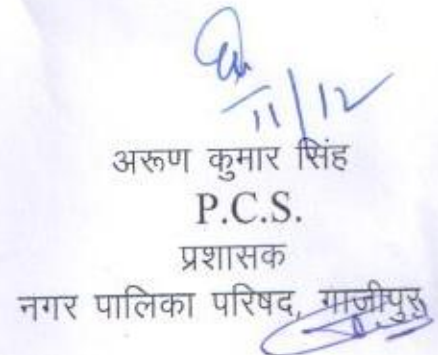 11/12
अरूण कुमार सिंह
P.C.S.
प्रशासक
नगर पालिका परिषद, गाजीपुर